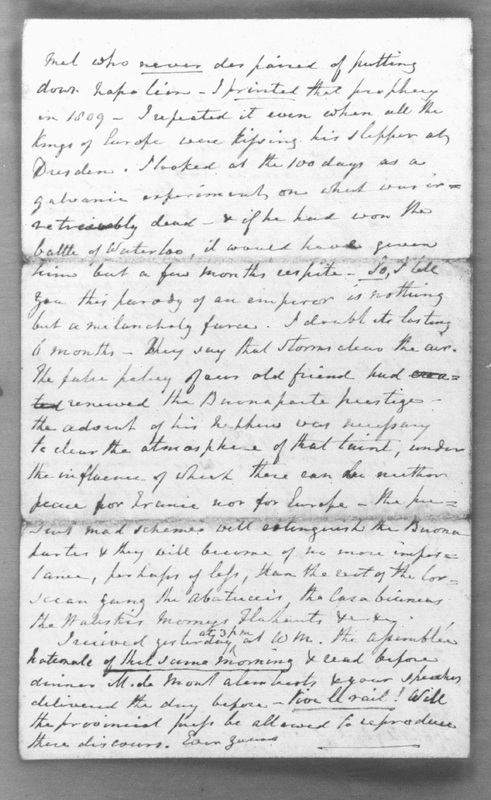 met who never despaired of putting
down Napoleon – I printed that prophecy
in 1809 – I repeated it even when all the
Kings of Europe were kissing his slipper at
Dresden. I looked at the 100 days as a
galvanic experiment, on what was ir=
retrievably dead – & if he had won the
battle of Waterloo, it would have given
him but a few months respite – So, I tell
you this parody of an emperor is nothing
but a melancholy farce. I doubt its lasting
6 months – They say that storms clear the air.
The false policy of our old friend had crea=
ted renewed the Buonaparte prestige –
the advent of his nephew was necessary
to clear the atmosphere of that taint, under
the influence of which there can be neither
peace for France nor for Europe – the pre=
sent mad schemes will extinguish the Buona
partes & they will become of no more impor=
tance, perhaps of less, than the rest of the Cor=
sican gang the Abatuccis, the Casabiancas
the Morneys Flahauts &c &c.
I received yesterday at 3 pm at WM. the assemblée
Nationale of that same Morning & read before
dinner M. de Montalemberts & your speeches
delivered the day before – Vive le rail! Will
the provincial press be allowed to reproduce
these discours. Ever yours